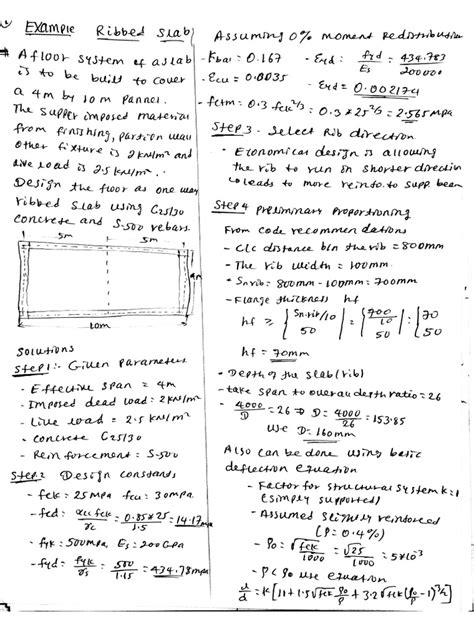 Example Ribbed slab
* A floor system of a slab
is to be built to cover
a 4m by 10m pannel.
The supper imposed material
from finishing, partion wall
other fixture is 2 kN/m² and
live load is 2.5 kN/m².
Design the floor as one way
ribbed slab using C25/30
concrete and S-500 rebars.
5m 5m
4m
10m
Solutions
Step 1:- Given Parameters
- Effective span = 4m
- Imposed dead load = 2kN/m²
- Live load = 2.5 kN/m²
- concrete C25/30
- Reinforcement = S-500
Step 2 Design constants
- fck = 25MPa fcu = 30mpa
- fcd = αcc fck / γc = 0.85*25 / 1.5 = 14.17mpa
- fyk = 500mpa, Es = 200GPa
- fyd = fyk / γs = 500 / 1.15 = 434.78mpa
Assuming 0% moment Redistribution
- Kbal = 0.167 - Eyd = fyd / Es = 434.783 / 200000
- Ecu = 0.0035
Eyd = 0.002174
- fctm = 0.3 fck^2/3 = 0.3 * 25^2/3 = 2.565mpa
Step 3 - Select Rib direction
- Economical design is allowing
the rib to run on shorter direction
leads to more reinfo. to supp. beam
Step 4 preliminary Proportioning
From code recommendations
- C/c distance btn the rib = 800mm
- The rib width = 100mm
- Sn,rib = 800mm - 100mm = 700mm
- Flange thickness hf
hf ≥ { Sn,rib/10 50 = { 700/10 50 : { 70 50
hf = 70mm
- Depth of the slab (rib)
- take span to overall depth ratio = 26
- 4000 / D = 26 ⇒ D = 4000 / 26 = 153.85
use D = 160mm
Also can be done using basic
deflection equation
- Factor for structural system k=1
(simply supported)
- Assumed slightly reinforced
(ρ = 0.4%)
- ρ0 = √fck / 1000 = √25 / 1000 = 5*10^-3
- ρ < ρ0 use equation
l/d = k[11 + 1.5√fck ρ0/ρ + 3.2√fck (ρ0/ρ - 1)^3/2]